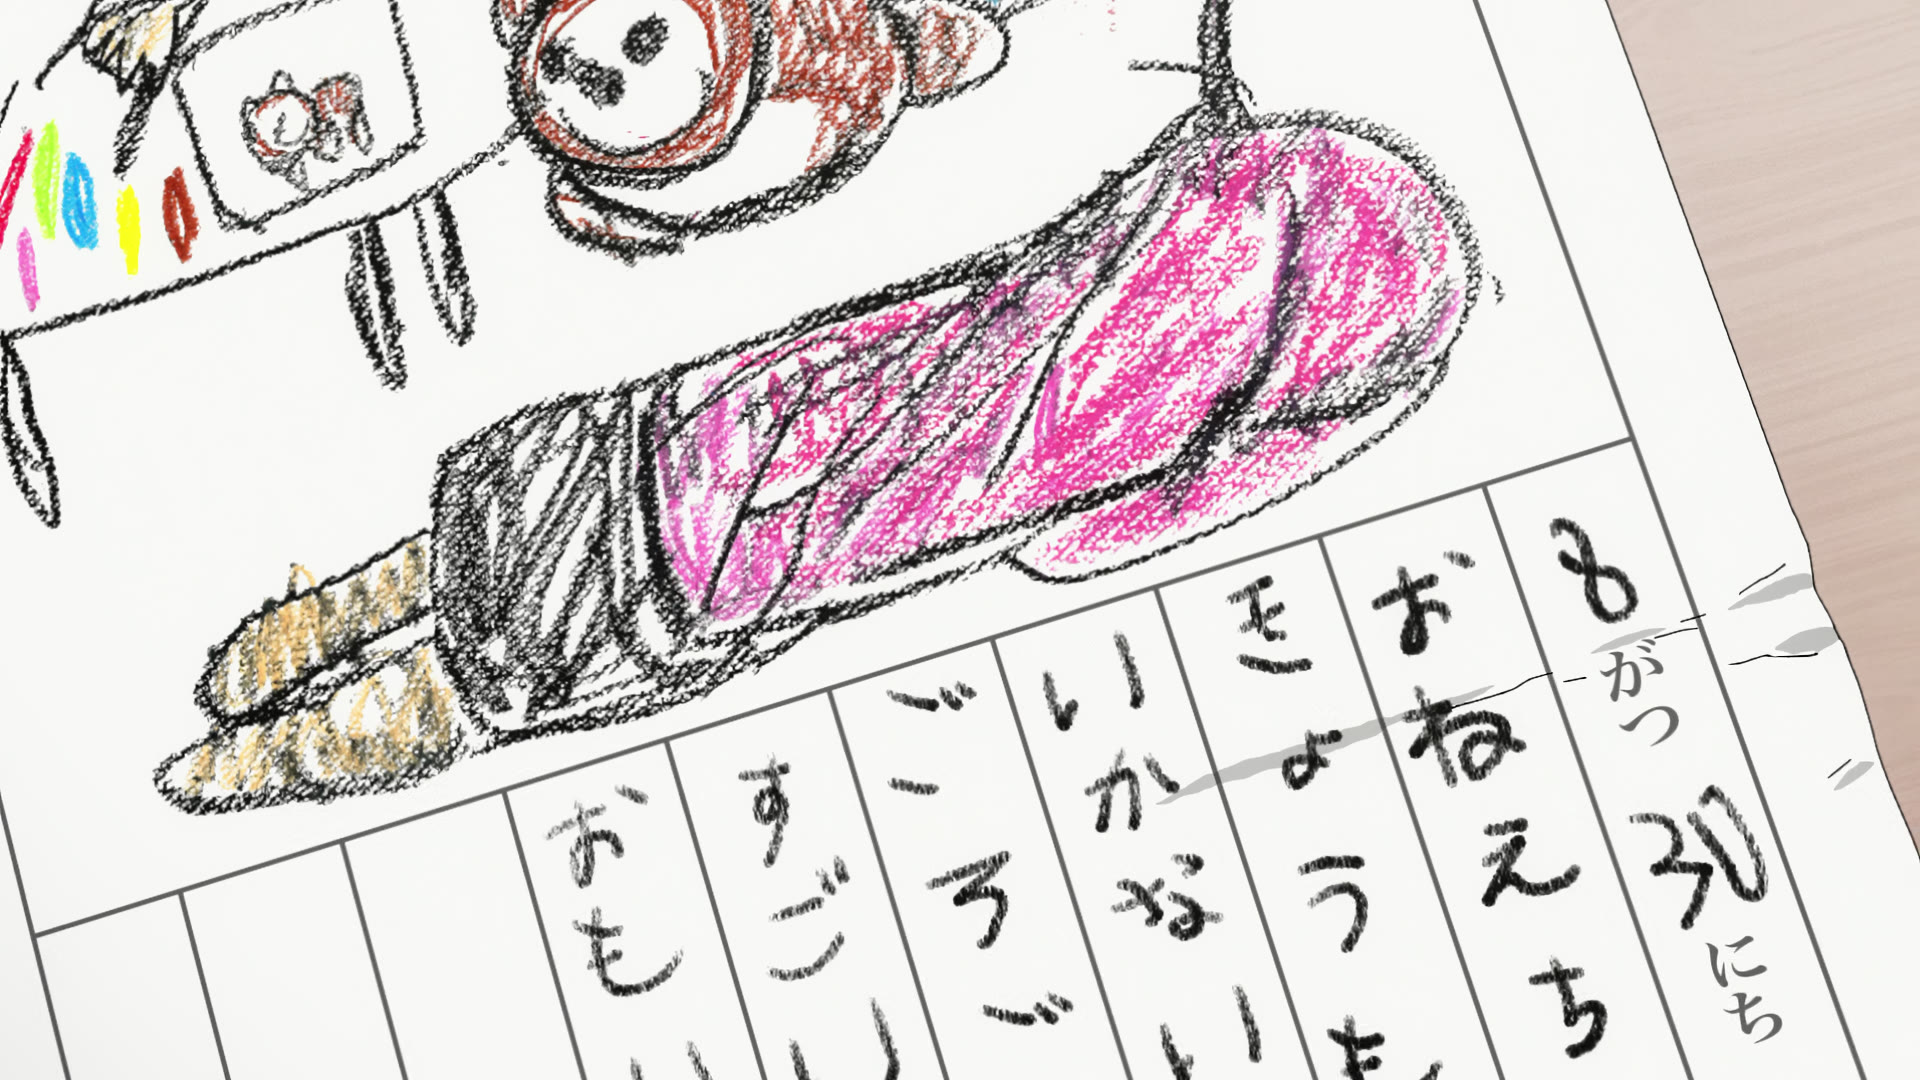 8がつ30にち
おねえち
きょうも
いかない
ごろご
すごい
おも